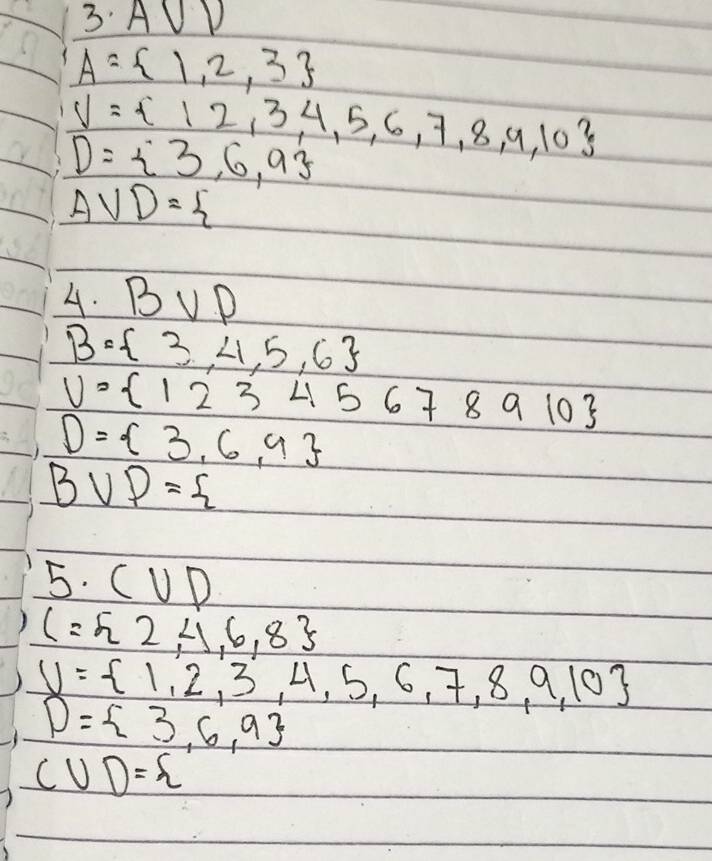 3. A U D
A = { 1, 2, 3 }
U = { 1 2, 3, 4, 5, 6, 7, 8, 9, 10 }
D = { 3, 6, 9 }
A U D = {
4. B U D
B = { 3, 4, 5, 6 }
U = { 1 2 3 4 5 6 7 8 9 10 }
D = { 3, 6, 9 }
B U D = {
5. C U D
C = { 2, 4, 6, 8 }
U = { 1, 2, 3, 4, 5, 6, 7, 8, 9, 10 }
D = { 3, 6, 9 }
C U D = {